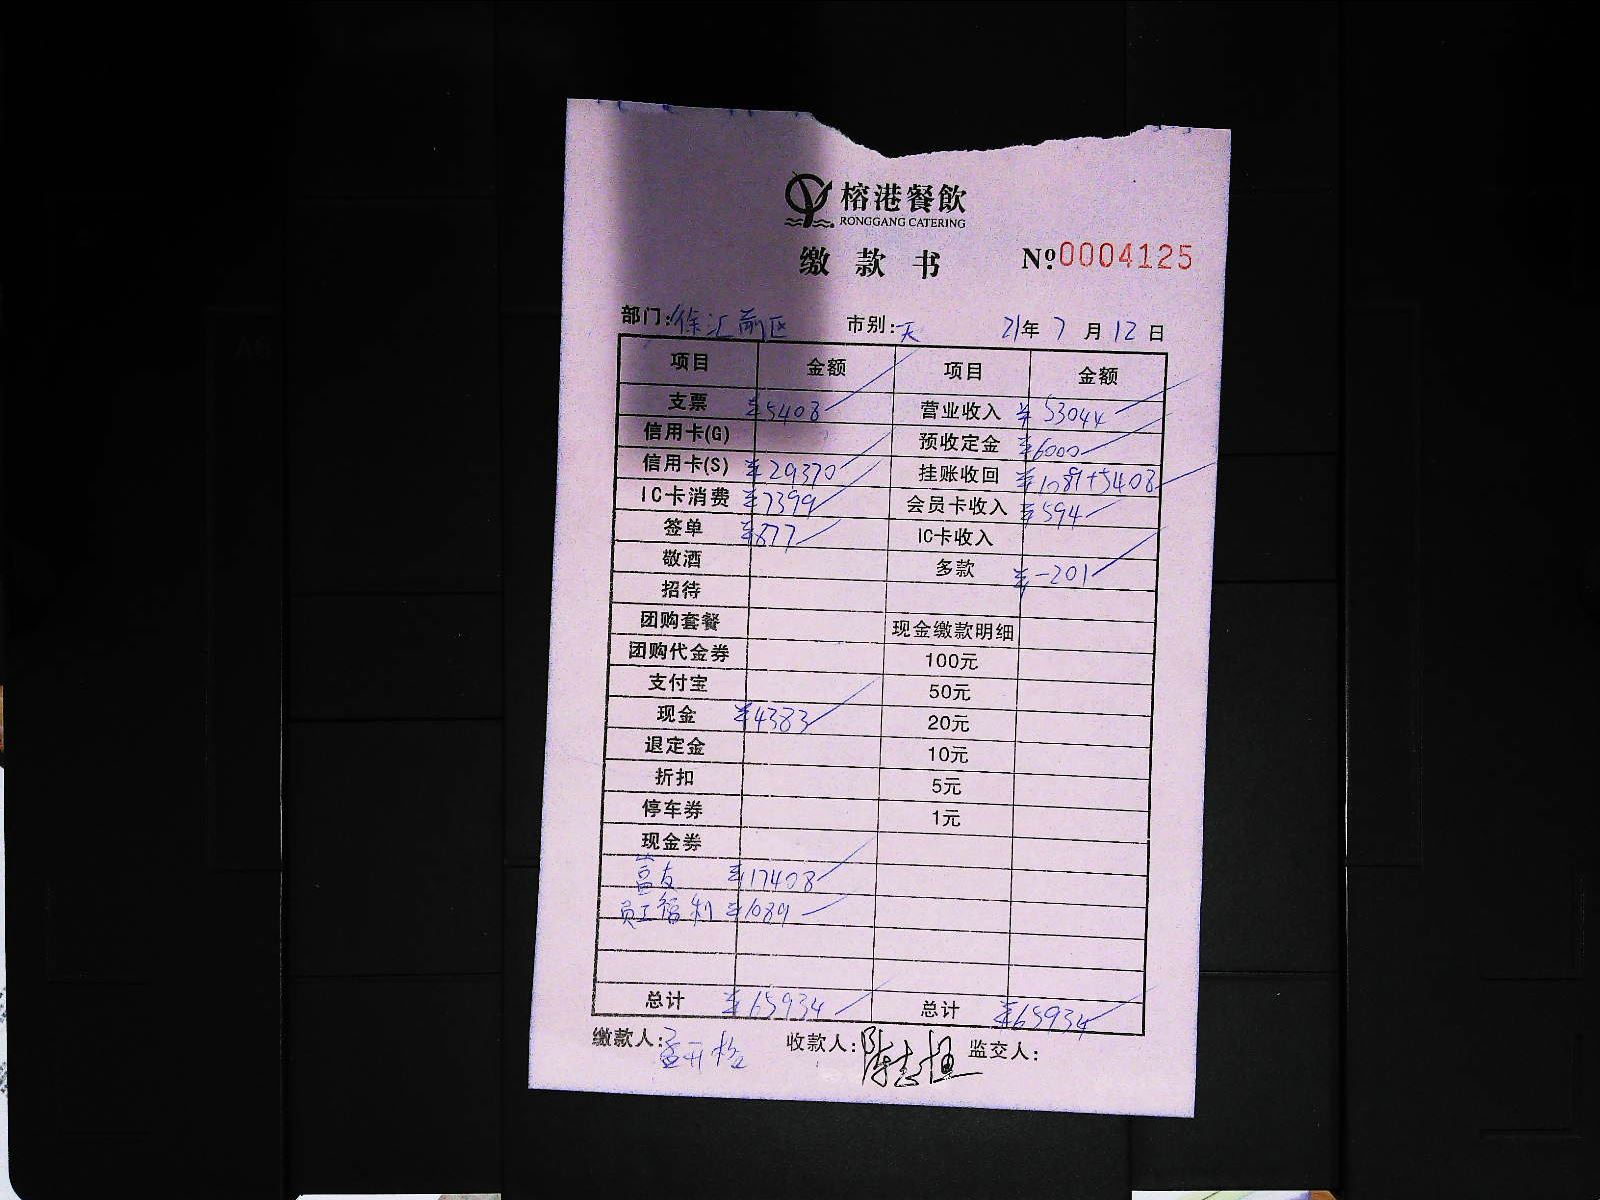 榕港餐飲
RONGGANG CATERING
缴款书 Nº:0004125
部门:徐汇前区 市别:天 21年7月12日
项目 金额 项目 金额
支票 ¥5408 营业收入 ¥53044
信用卡(G) 预收定金 ¥6000
信用卡(S) ¥29370 挂账收回 ¥1089+5408
IC卡消费 ¥7399 会员卡收入 ¥594
签单 ¥877 IC卡收入
敬酒 多款 ¥-201
招待
团购套餐 现金缴款明细
团购代金券 100元
支付宝 50元
现金 ¥4383 20元
退定金 10元
折扣 5元
停车券 1元
现金券
富友 ¥17408
员工福利 ¥1089
总计 ¥65934 总计 ¥65934
缴款人: 收款人: 监交人: